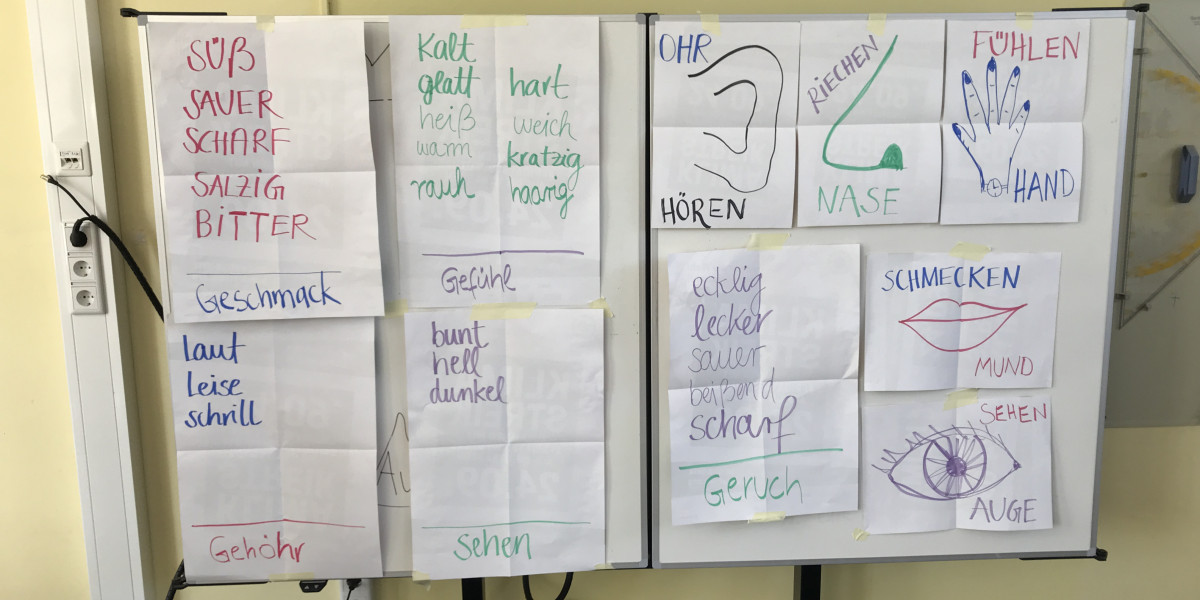 SÜß
SAUER
SCHARF
SALZIG
BITTER
Geschmack
Kalt
glatt
heiß
warm
rauh
hart
weich
kratzig
haarig
Gefühl
laut
Leise
schrill
Gehöhr
bunt
hell
dunkel
sehen
OHR
HÖREN
RIECHEN
NASE
FÜHLEN
HAND
ecklig
lecker
sauer
beißend
scharf
Geruch
SCHMECKEN
MUND
SEHEN
AUGE